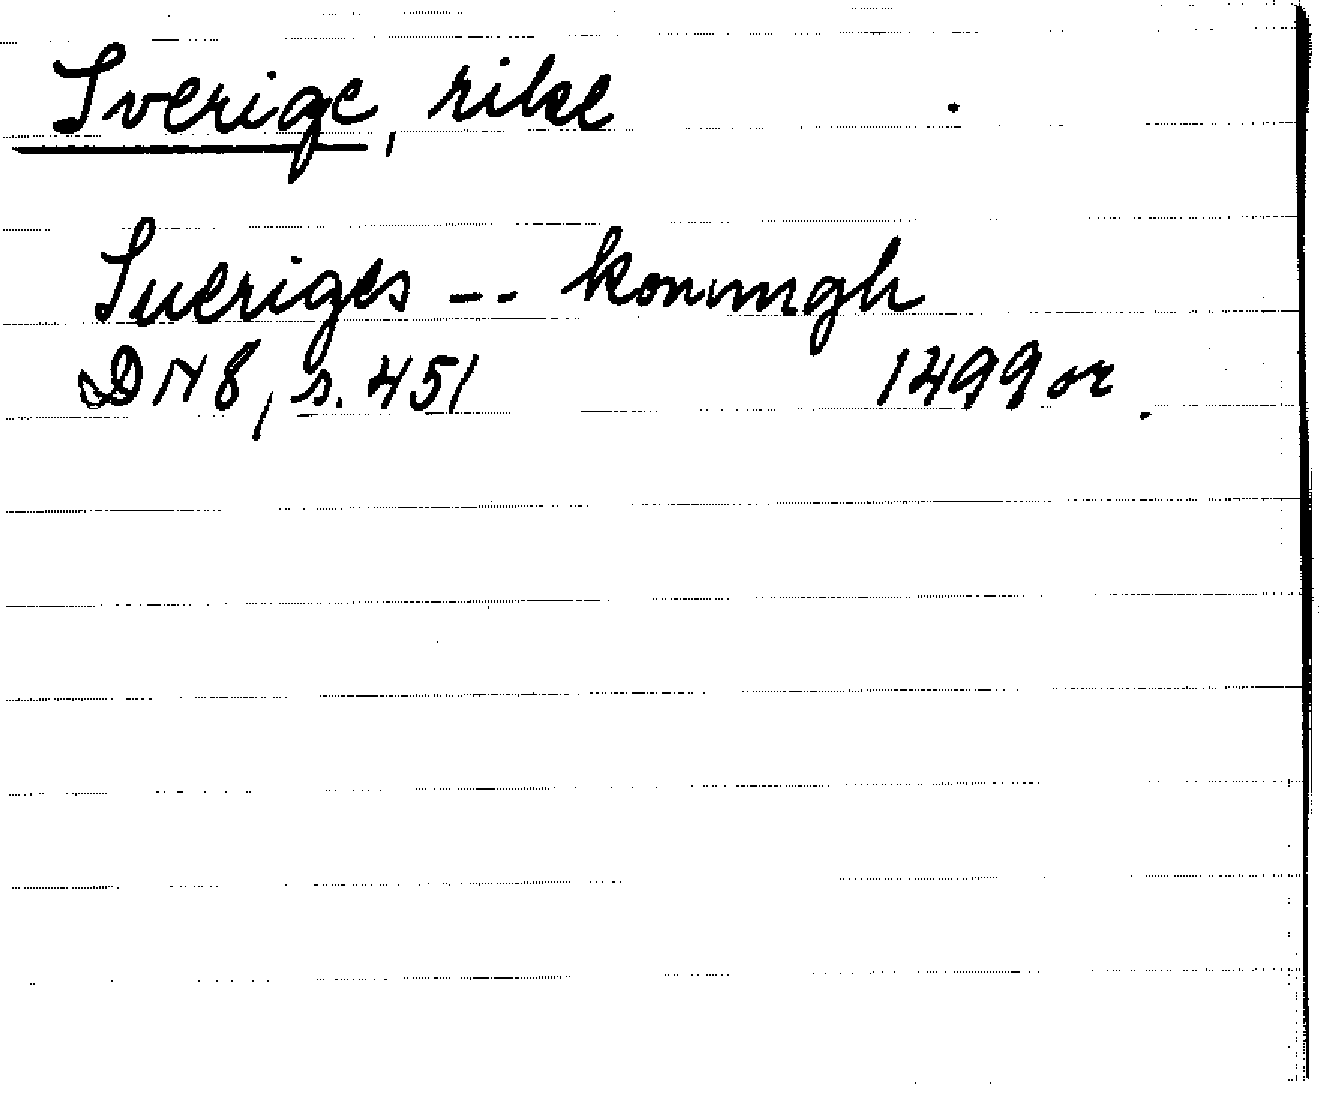 Sverige, rike
Sueriges -- konungh
DN 8, s. 451 1499 or.